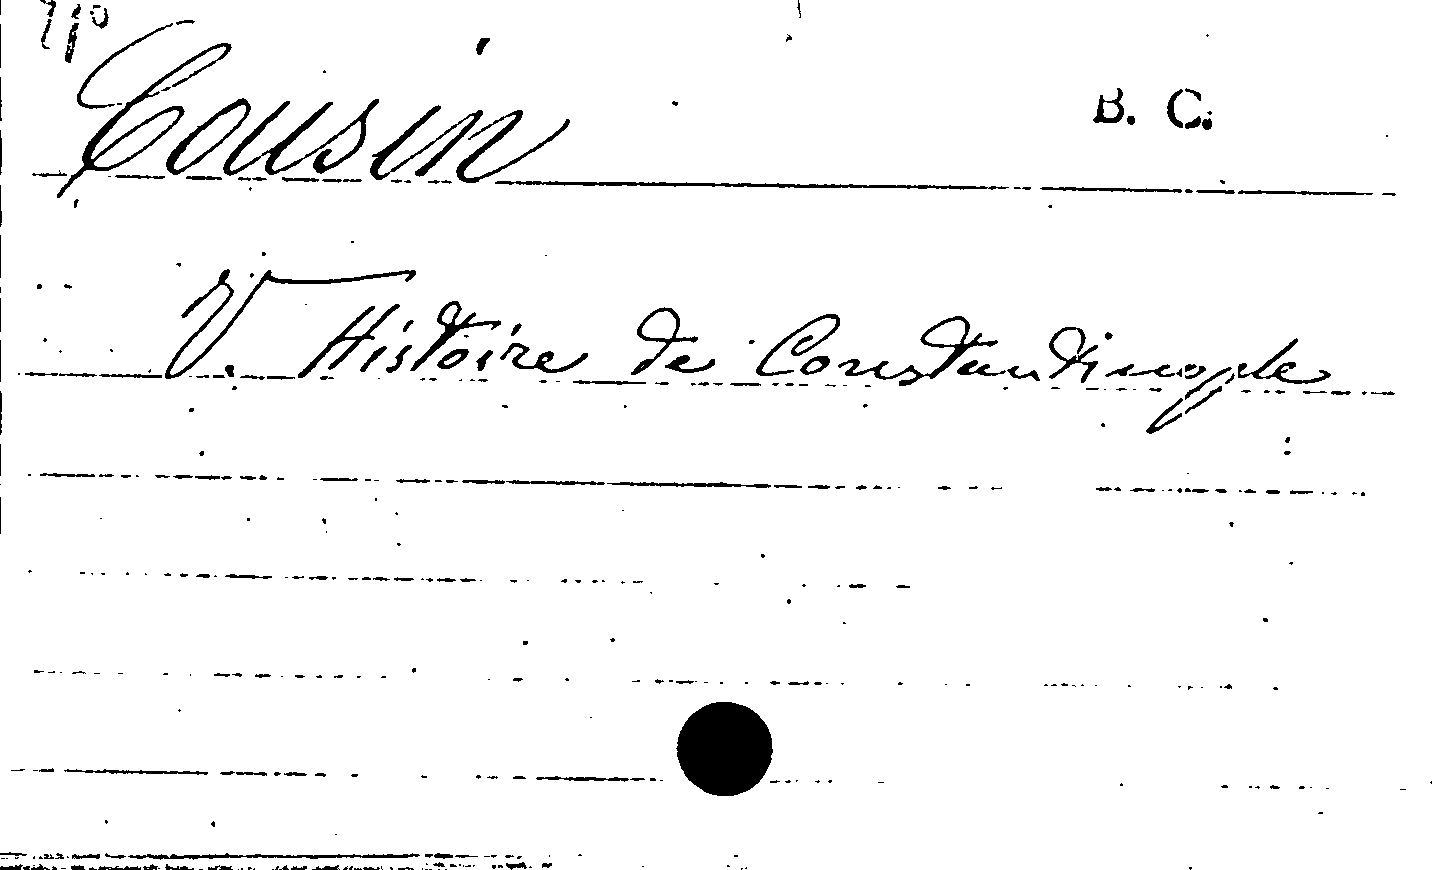 Cousin
B. C.
V. Histoire de Constantinople